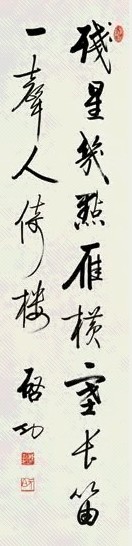 殘星幾點雁橫塞長笛
一聲人倚樓
啓功